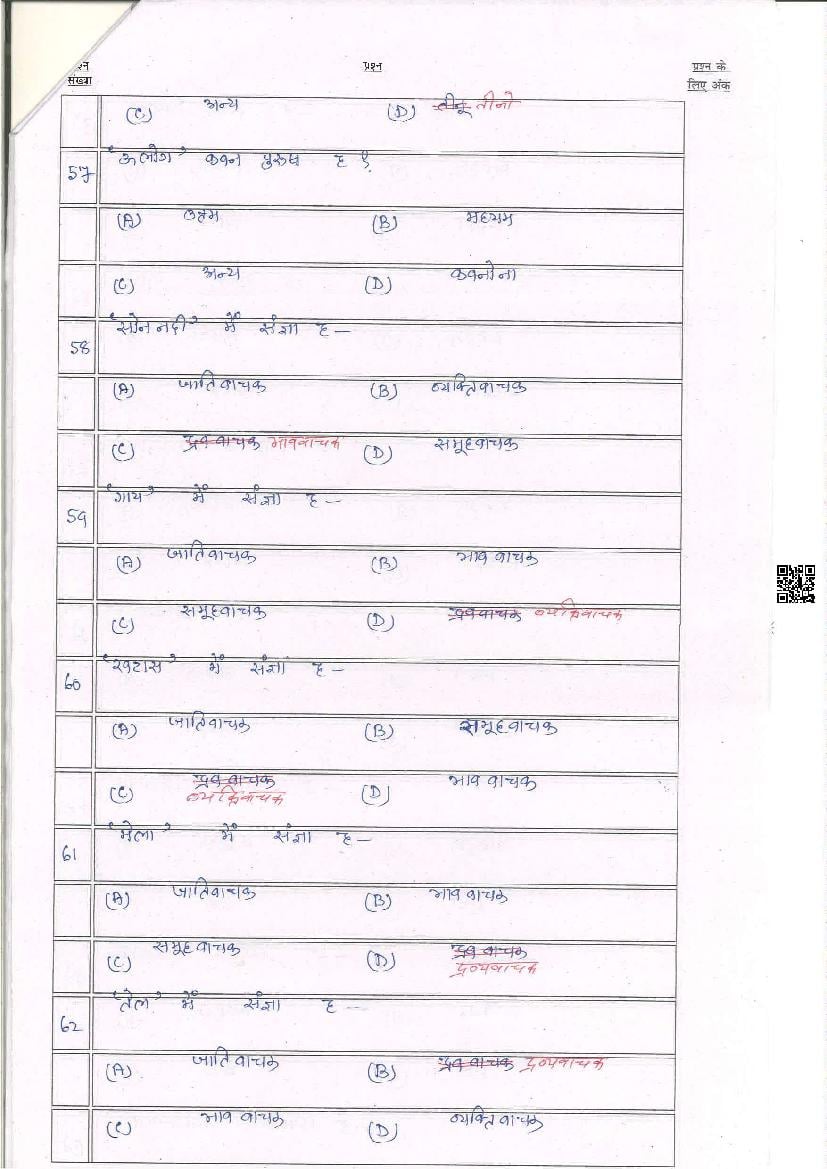 प्रश्न प्रश्न के
संख्या लिए अंक
(C) अन्य (D) तीनू तीनो
57 'ऊ लोग' कवन पुरुष ह ?
(A) उत्तम (B) मध्यम
(C) अन्य (D) कवनो ना
58 'सोन नदी' में संज्ञा ह —
(A) जातिवाचक (B) व्यक्तिवाचक
(C) द्रववाचक भाववाचक (D) समूहवाचक
59 'गाय' में संज्ञा ह —
(A) जातिवाचक (B) भाव वाचक
(C) समूहवाचक (D) द्रववाचक व्यक्तिवाचक
60 'खटास' में संज्ञा ह —
(A) जातिवाचक (B) समूहवाचक
(C) द्रव वाचक (D) भाव वाचक
व्यक्तिवाचक
61 'मेला' में संज्ञा ह —
(A) जातिवाचक (B) भाव वाचक
(C) समूहवाचक (D) द्रव वाचक
द्रव्यवाचक
62 'तेल' में संज्ञा ह —
(A) जातिवाचक (B) द्रव वाचक द्रव्यवाचक
(C) भाव वाचक (D) व्यक्तिवाचक